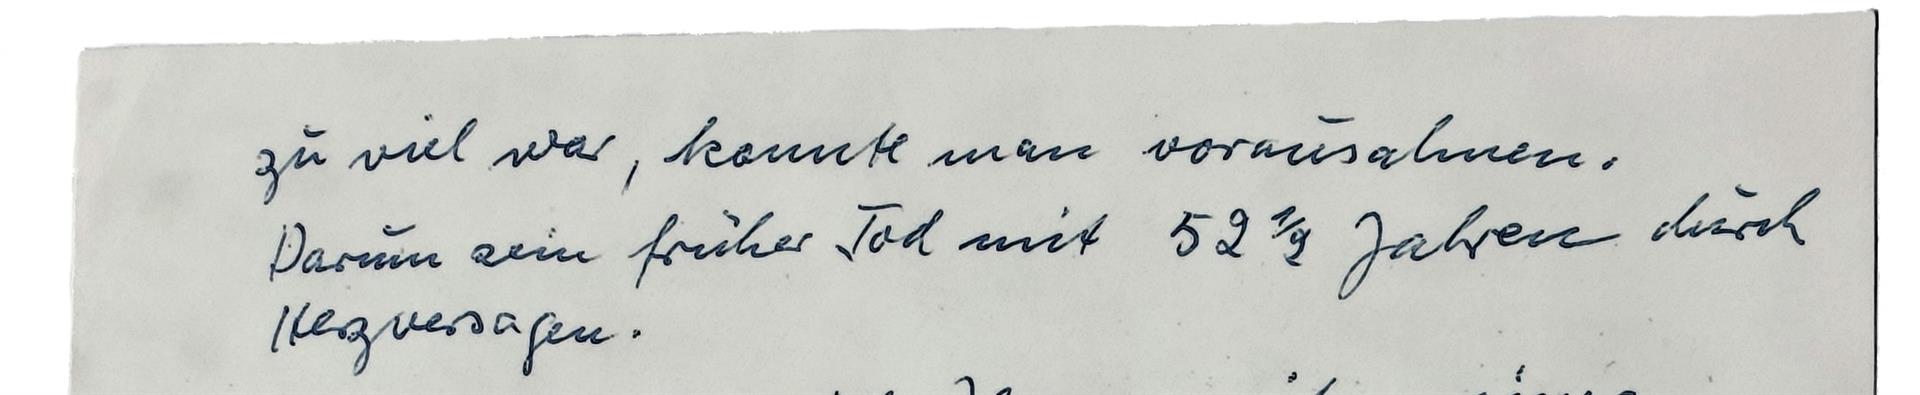 zu viel war, konnte man vorausahnen.
Darum sein früher Tod mit 52 1/2 Jahren durch
Herzversagen.